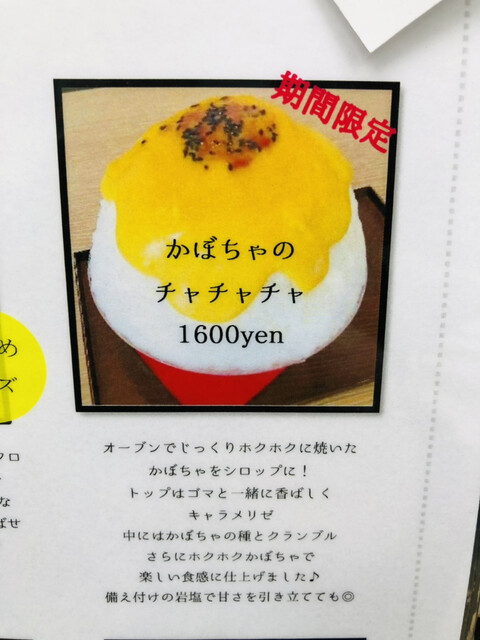 期間限定
かぼちゃの
チャチャチャ
1600yen
オーブンでじっくりホクホクに焼いた
かぼちゃをシロップに！
トップはゴマと一緒に香ばしく
キャラメリゼ
中にはかぼちゃの種とクランブル
さらにホクホクかぼちゃで
楽しい食感に仕上げました♪
備え付けの岩塩で甘さを引き立てても◎
め
ズ
クロ
な
ばせ